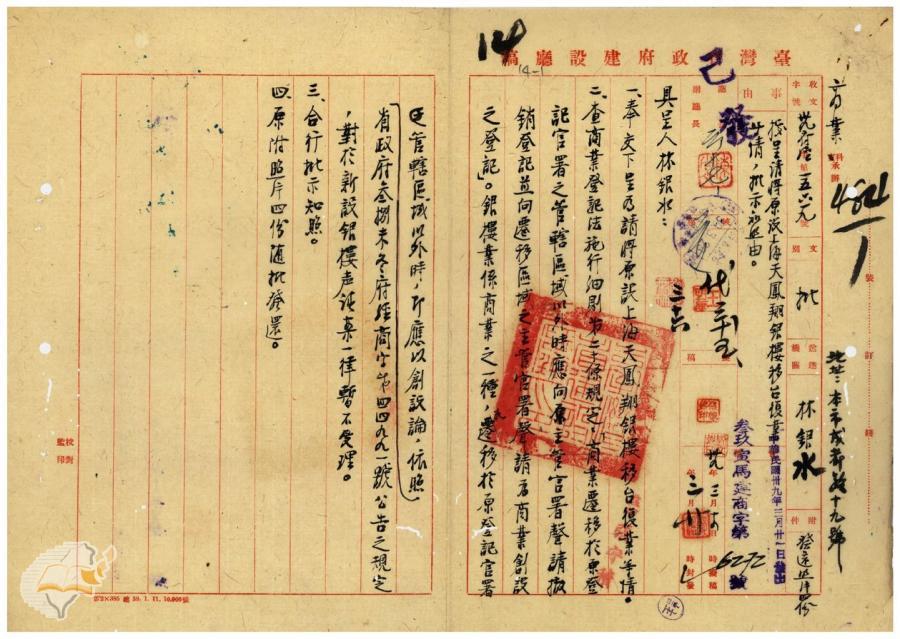 14
14-1
臺灣省政府建設廳稿
商業
科承辦
4824
1
收文
字號
事由
文別
批
送達機關
林銀水
附件
發還照片四份
據呈請將原設上海天鳳翔銀樓移台復業
等情,批示知照由。
地址:本市成都路十九號
中華民國卅九年三月廿一日發出
叁玖寅馬建商字第
6272
號
已發
廳長
副廳長
代
具呈人林銀水:
一、奉交下呈乃請將原設上海天鳳翔銀樓移台復業等情。
二、查商業登記法施行細則第二十條規定「商業遷移於原登
記官署之管轄區域以外時應向原主管官署聲請撤
銷登記並向遷移區域之主管官署聲請為商業創設
之登記」。銀樓業係商業之一種,遷移於原登記官署
之管轄區域以外時,即應以創設論,依照
省政府叁捌未冬府經商字第四四九九一號公告之規定
,對於新設銀樓聲請案一律暫不受理。
三、合行批示知照。
四、原附照片四份隨批發還。
校對
監印